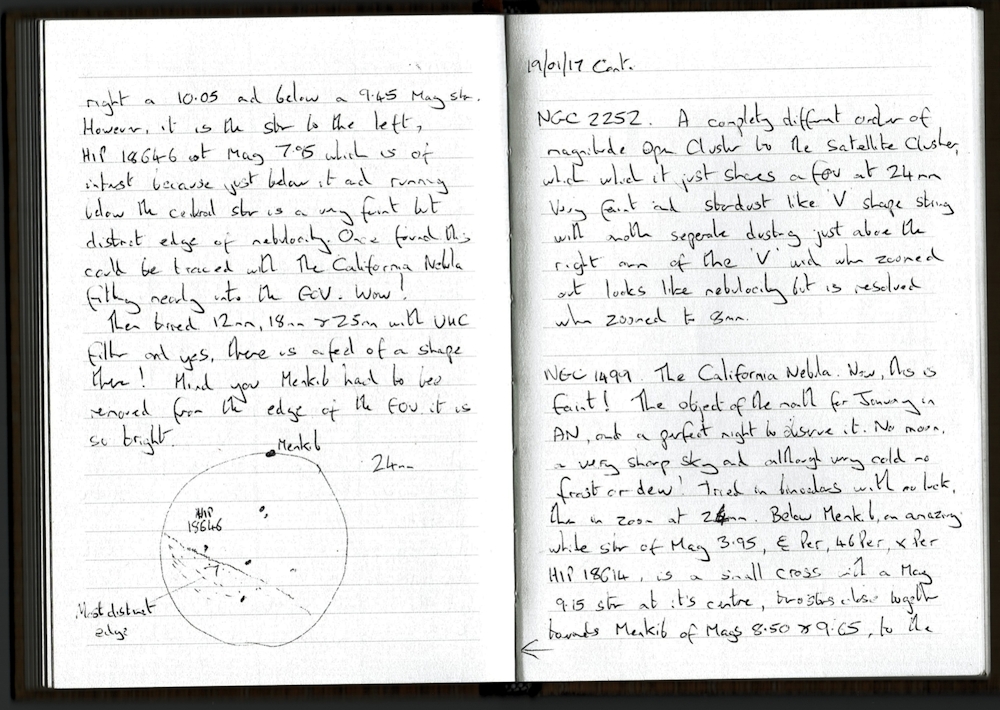 right a 10.05 ad below a 9.45 Mag str.
However, it is the str to the left,
HIP 18646 at Mag 7.95 which is of
intrest because just below it ad running
below the central str is a very faint but
distinct edge of nebulocity. Once found this
could be traced with the California Nebula
filling nearly into the FOV. Wow!
Then tried 12mm, 18mm & 25mm with UHC
filter and yes, there is a feel of a shape
there! Mind you Menkib had to be
removed from the edge of the FOV it is
so bright.
Menkib
24mm
HIP
18646
Most distinct
edge
19/01/17 Cont.
NGC 2252. A completly different order of
magnitude Open Cluster to the Satellite Cluster,
which which it just shares a FOV at 24mm
Very faint and stardust like 'V' shape string
with seperate dusting just above the
right arm of the 'V' when zoomed
out looks like nebulocity but is resolved
when zoomed to 8mm.
NGC 1499. The California Nebula. Now, this is
faint! The object of the month for January in
AN, and a perfect night to observe it. No moon,
a very sharp sky ad although very cold no
frost or dew! Tried in binoculars with no luck,
then in zoom at 24mm. Below Menkib, an amazing
white str of Mag 3.95, ξ Per, 46 Per, x Per
HIP 18614, is a small cross with a Mag
9.15 str at it's centre, two strs close together
towards Menkib of Mags 8.50 & 9.65, to the